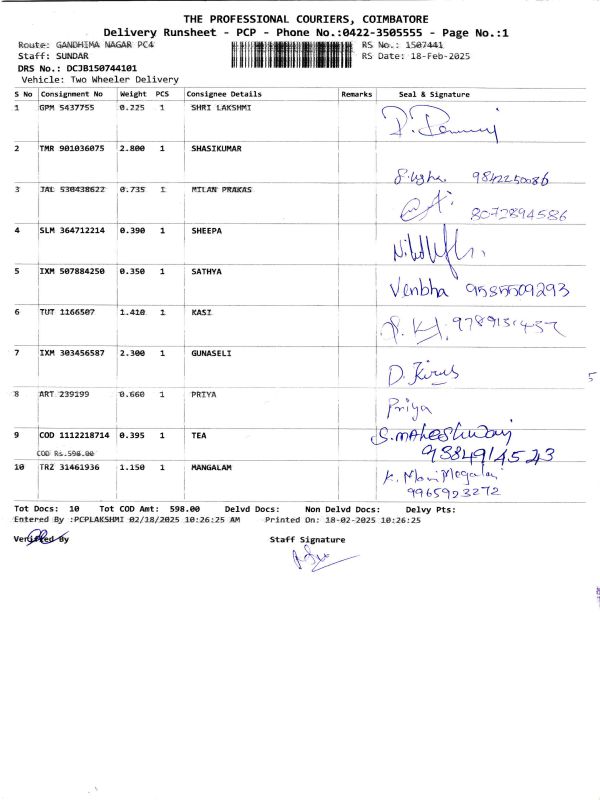 THE PROFESSIONAL COURIERS, COIMBATORE
Delivery Runsheet - PCP - Phone No.:0422-3505555 - Page No.:1
Route: GANDHIMA NAGAR PC4 RS No.: 1507441
Staff: SUNDAR RS Date: 18-Feb-2025
DRS No.: DCJB150744101
Vehicle: Two Wheeler Delivery
S No Consignment No Weight PCS Consignee Details Remarks Seal & Signature
1 GPM 5437755 0.225 1 SHRI LAKSHMI
2 TMR 901036075 2.800 1 SHASIKUMAR
9842250086
3 JAL 530438622 0.735 1 MILAN PRAKAS
8072894586
4 SLM 364712214 0.390 1 SHEEPA
5 IXM 507884250 0.350 1 SATHYA
Venbha 9585509293
6 TUT 1166507 1.410 1 KASI
7 IXM 303456587 2.300 1 GUNASELI
D.
8 ART 239199 0.660 1 PRIYA
Priya
9 COD 1112218714 0.395 1 TEA
S.maheshwari
9884914523
COD Rs.598.00
10 TRZ 31461936 1.150 1 MANGALAM
K. Mani Megalai
9965923272
Tot Docs: 10 Tot COD Amt: 598.00 Delvd Docs: Non Delvd Docs: Delvy Pts:
Entered By :PCPLAKSHMI 02/18/2025 10:26:25 AM Printed On: 18-02-2025 10:26:25
Verified By Staff Signature